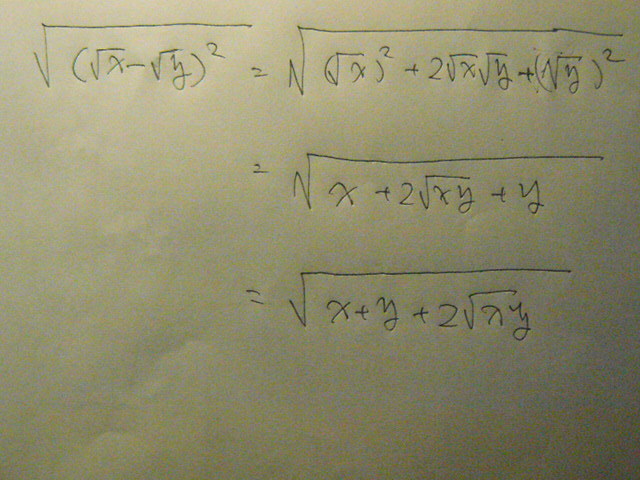 √((√x-√y)²) = √((√x)²+2√x√y+(√y)²)
= √(x+2√(xy)+y)
= √(x+y+2√(xy))